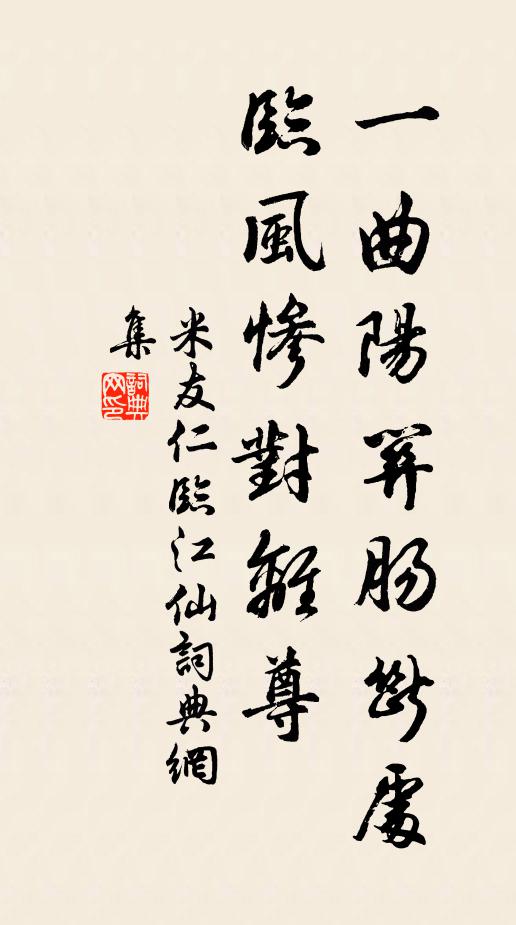 一曲陽關肠斷處
臨風慘對離尊
米友仁臨江仙詞典網
集
詞典網印